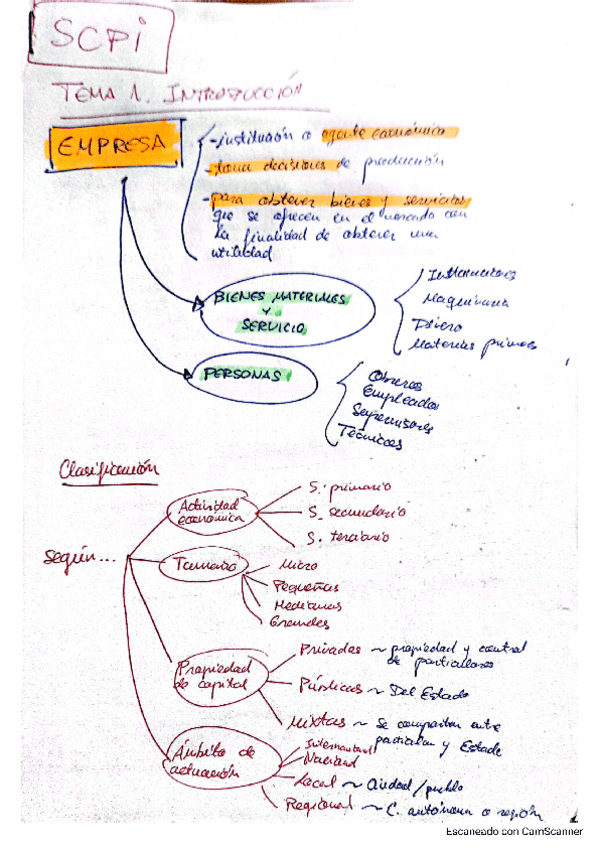 SCPi
TEMA 1. INTRODUCCIÓN
EMPRESA
-institución o agente económico
-toma decisiones de producción
-para obtener bienes y servicios
que se ofrecen en el mercado con
la finalidad de obtener una
utilidad
BIENES MATERIALES
Y
SERVICIO
Instalaciones
Maquinaria
Dinero
Materias primas
PERSONAS
Obreros
Empleados
Supervisores
Técnicos
Clasificación
según...
Actividad
económica
S. primario
S. secundario
S. terciario
Tamaño
Micro
Pequeñas
Medianas
Grandes
Propiedad
de capital
Privadas ~ propiedad y control
de particulares
Públicas ~ Del Estado
Mixtas ~ Se comparten entre
particular y Estado
Ámbito de
actuación
Internacional
Nacional
Local ~ Ciudad/pueblo
Regional ~ C. autónoma o región
Escaneado con CamScanner